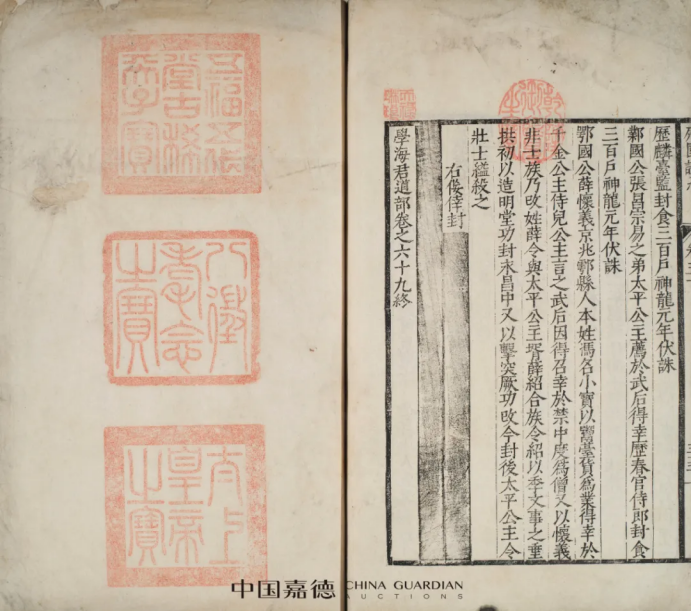 歷麟臺監封食三百戶神龍元年伏誅
鄴國公張昌宗易之弟太平公主薦於武后得幸歷春官侍郎封食
三百戶神龍元年伏誅
鄂國公薛懷義京兆鄠縣人本姓馮名小寶以鬻臺貨為業得幸於
千金公主侍兒公主言之武后因得召幸於禁中度為僧又以懷義
非士族乃攺姓薛令與太平公主壻薛紹合族令紹以季父事之垂
拱初以造明堂功封永昌中又以擊突厥功攺今封後太平公主令
壯士縊殺之
右倿倖封
學海君道部卷之六十九終
五福五代
堂古稀
天子寶
八徵
耄念
之寶
太上
皇帝
之寶
中国嘉德
CHINA GUARDIAN
AUCTIONS